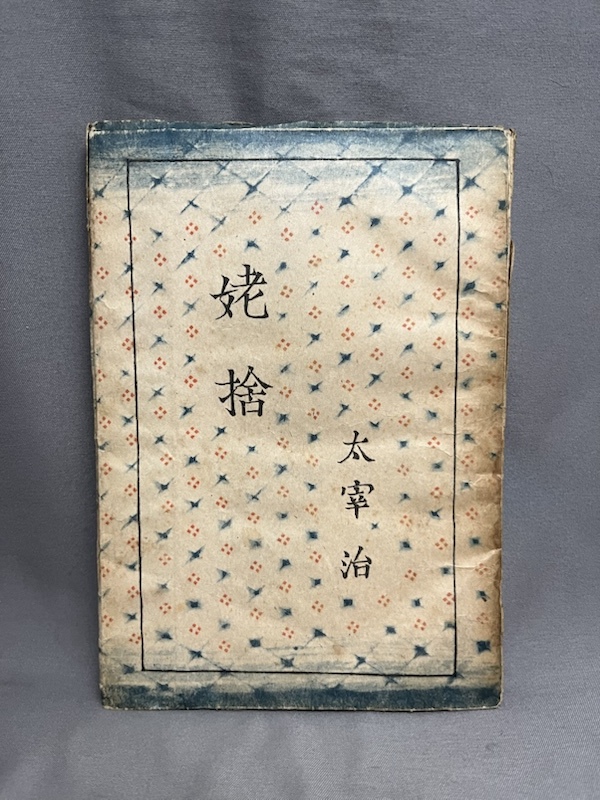 姥捨
太宰治